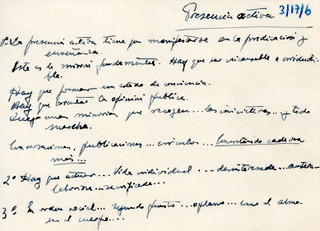 Presencia activa 3/17/6
1º La presencia activa tiene que manifestarse en la predicación y
enseñanza.
Esta es la misión fundamental. Hay que ser incansable e ineludi-
ble.
Hay que formar un estado de conciencia.
Hay que orientar la opinión pública.
Luego una minoria que recogen... las iniciativas... y todo
marcha.
Conversaciones, publicaciones... círculos...
más...
2º Hay que actuar... Vida individual... desinteresada... austera...
laboriosa... sacrificada...
3º En orden social... segundo puesto... como el alma
en el cuerpo...